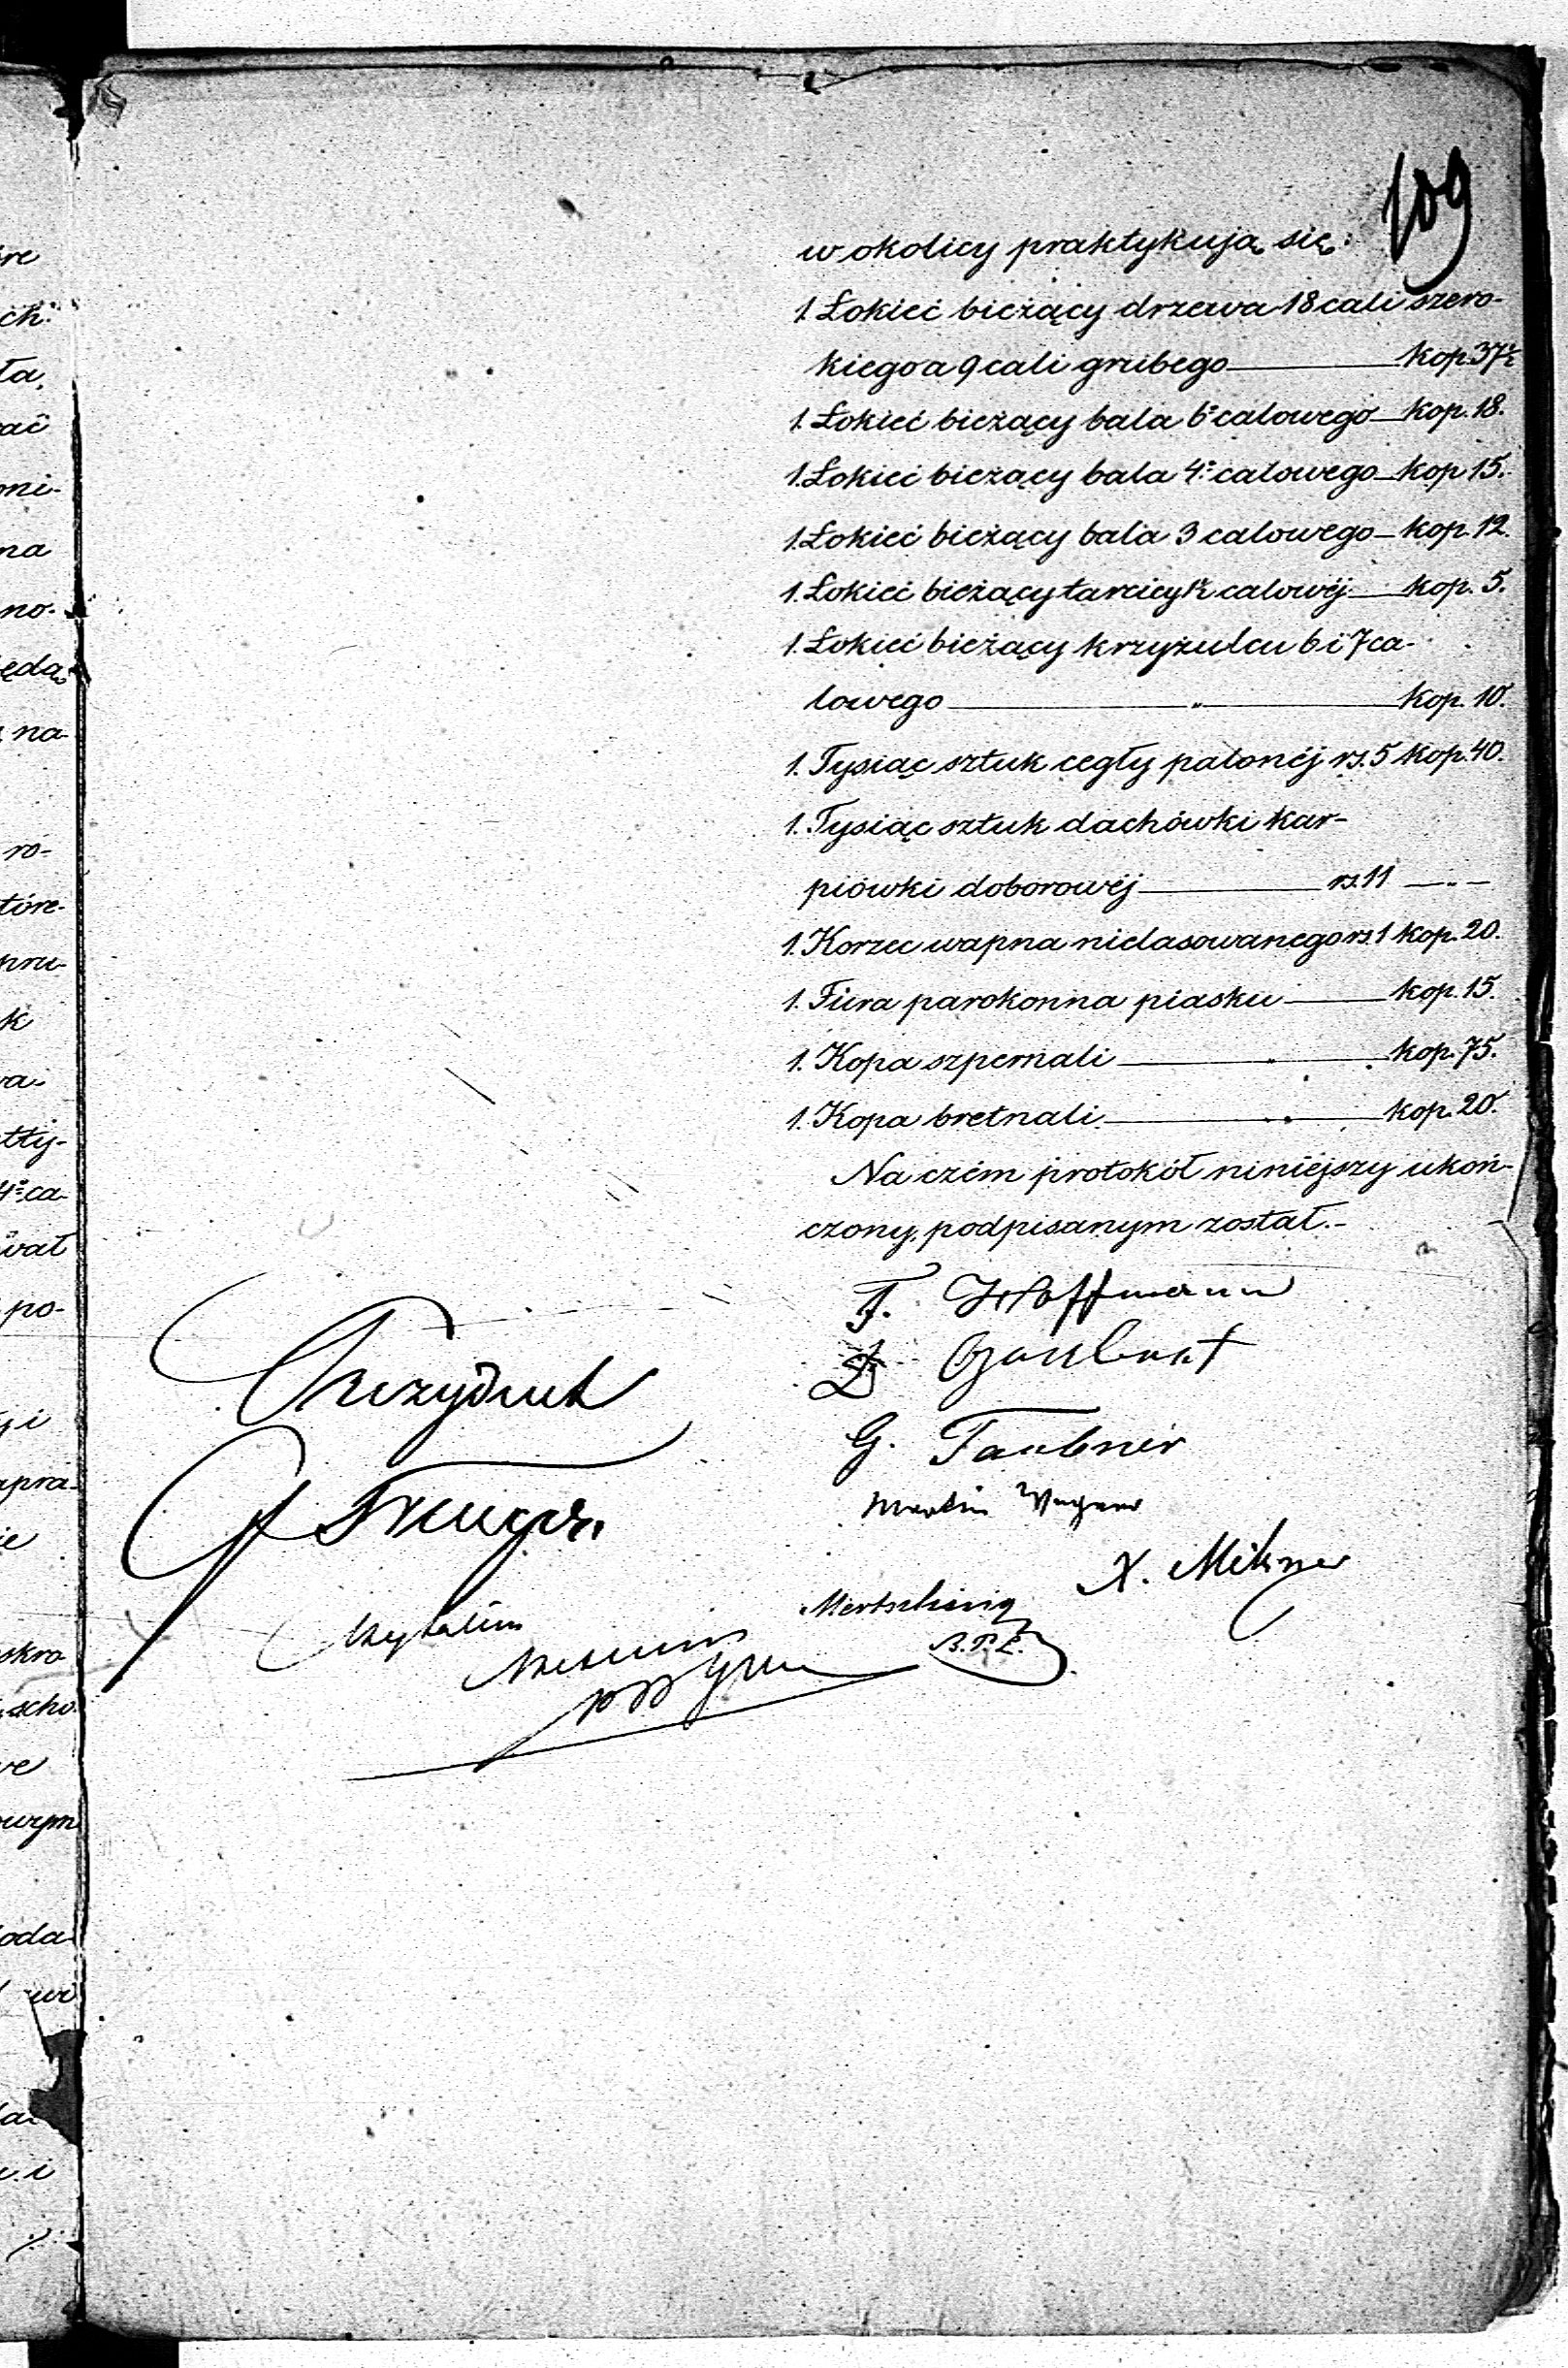 109
w okolicy praktykują się:
1. Łokieć bieżący drzewa 18 cali szero-
kiego a 9 cali grubego — kop. 37½
1. Łokieć bieżący bala 6º calowego — kop. 18.
1. Łokieć bieżący bala 4º calowego — kop 15.
1. Łokieć bieżący bala 3 calowego — kop. 12.
1. Łokieć bieżący tarcicy calowéj — kop. 5.
1. Łokieć bieżący krzyżulcu 6 i 7 ca-
lowego — " — kop. 10.
1. Tysiąc sztuk cegły palonéj rs. 5 kop. 40.
1. Tysiąc sztuk dachówki kar-
piówki doborowéj — rs. 11 — " —
1. Korzec wapna nielasowanego rs. 1 kop. 20.
1. Fura parokonna piasku — kop. 15.
1. Kopa szpernali — " — kop. 75.
1. Kopa bretnali — " — kop. 20.
Na czém protokół niniéjszy ukoń-
czony, podpisanym został. –
F. Hoffmann
Prezydent
G. Taubner
Martin Wagner
Mertsching
B. P. Ł.